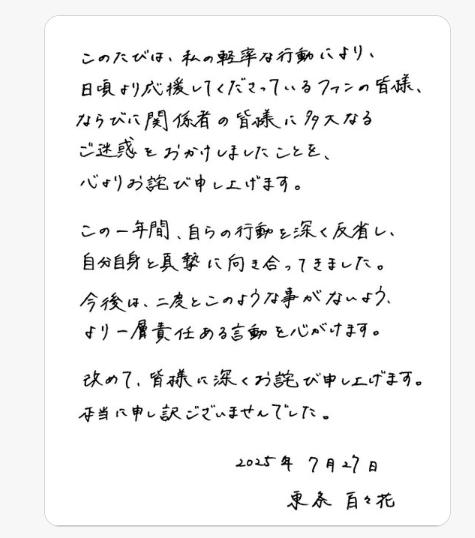 このたびは、私の軽率な行動により、
日頃より応援してくださっているファンの皆様、
ならびに関係者の皆様に多大なる
ご迷惑をおかけしましたことを、
心よりお詫び申し上げます。
この一年間、自らの行動を深く反省し、
自分自身と真摯に向き合ってきました。
今後は、二度とこのような事がないよう、
より一層責任ある言動を心がけます。
改めて、皆様に深くお詫び申し上げます。
本当に申し訳ございませんでした。
2025年 7月27日
東条 百々花